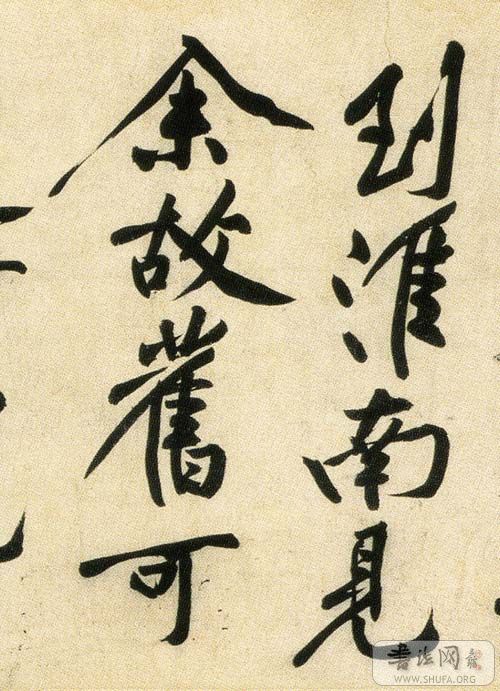 到淮南見
余故舊可
書法网
WWW.SHUFA.ORG